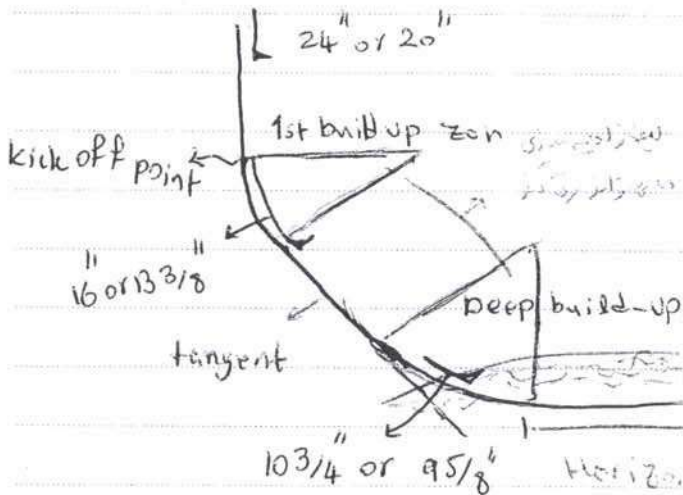 24" or 20"
1st build up zon
kick off point
16" or 13 3/8"
tangent
Deep build-up
10 3/4" or 9 5/8"
Horizo